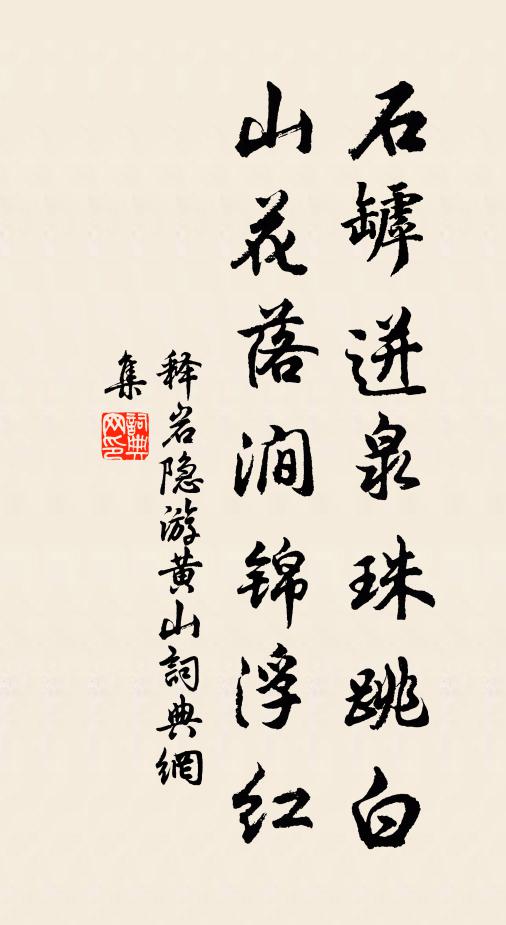 石罅迸泉珠跳白
山花落涧锦浮红
释岩隐游黄山詞典網
集
詞典网印